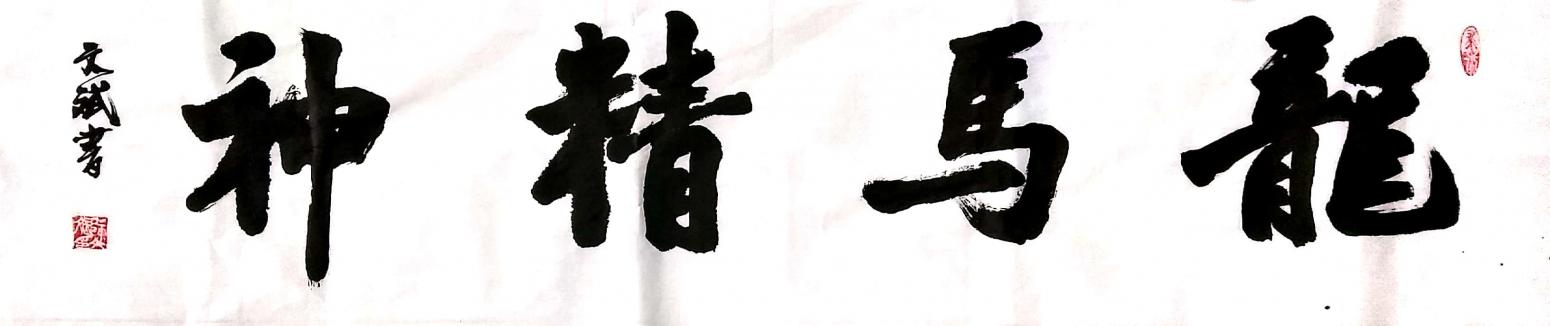 龍马精神
文斌書